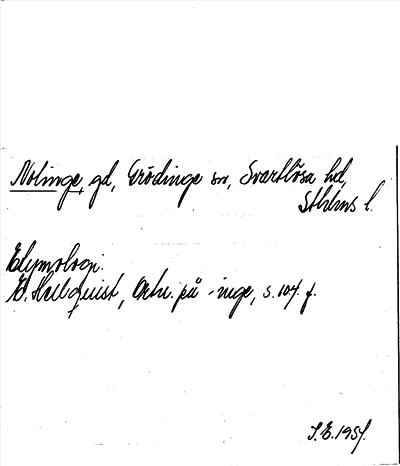 Nolinge, gd, Grödinge sn, Svartlösa hd,
Sthlms l.
Etymologi.
E. Hellquist, Ortn. på -inge, s. 104 f.
S.E. 1957.